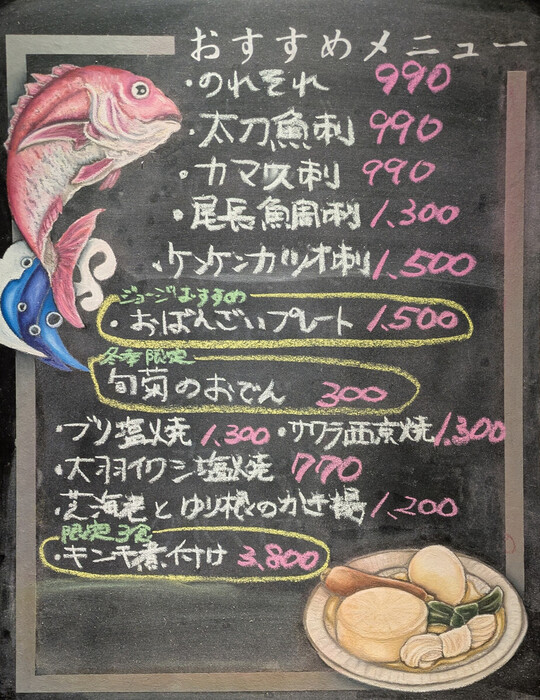 おすすめメニュー
・のれそれ 990
・太刀魚刺 990
・カマス刺 990
・尾長鯛刺 1,300
・ケンケンカツオ刺 1,500
ジョージおすすめ
・おばんざいプレート 1,500
冬季限定
旬菊のおでん 300
・ブリ塩焼 1,300 ・サワラ西京焼 1,300
・大羽イワシ塩焼 770
・芝海老とゆり根のかき揚 1,200
限定3食
・キンキ煮付け 3,800